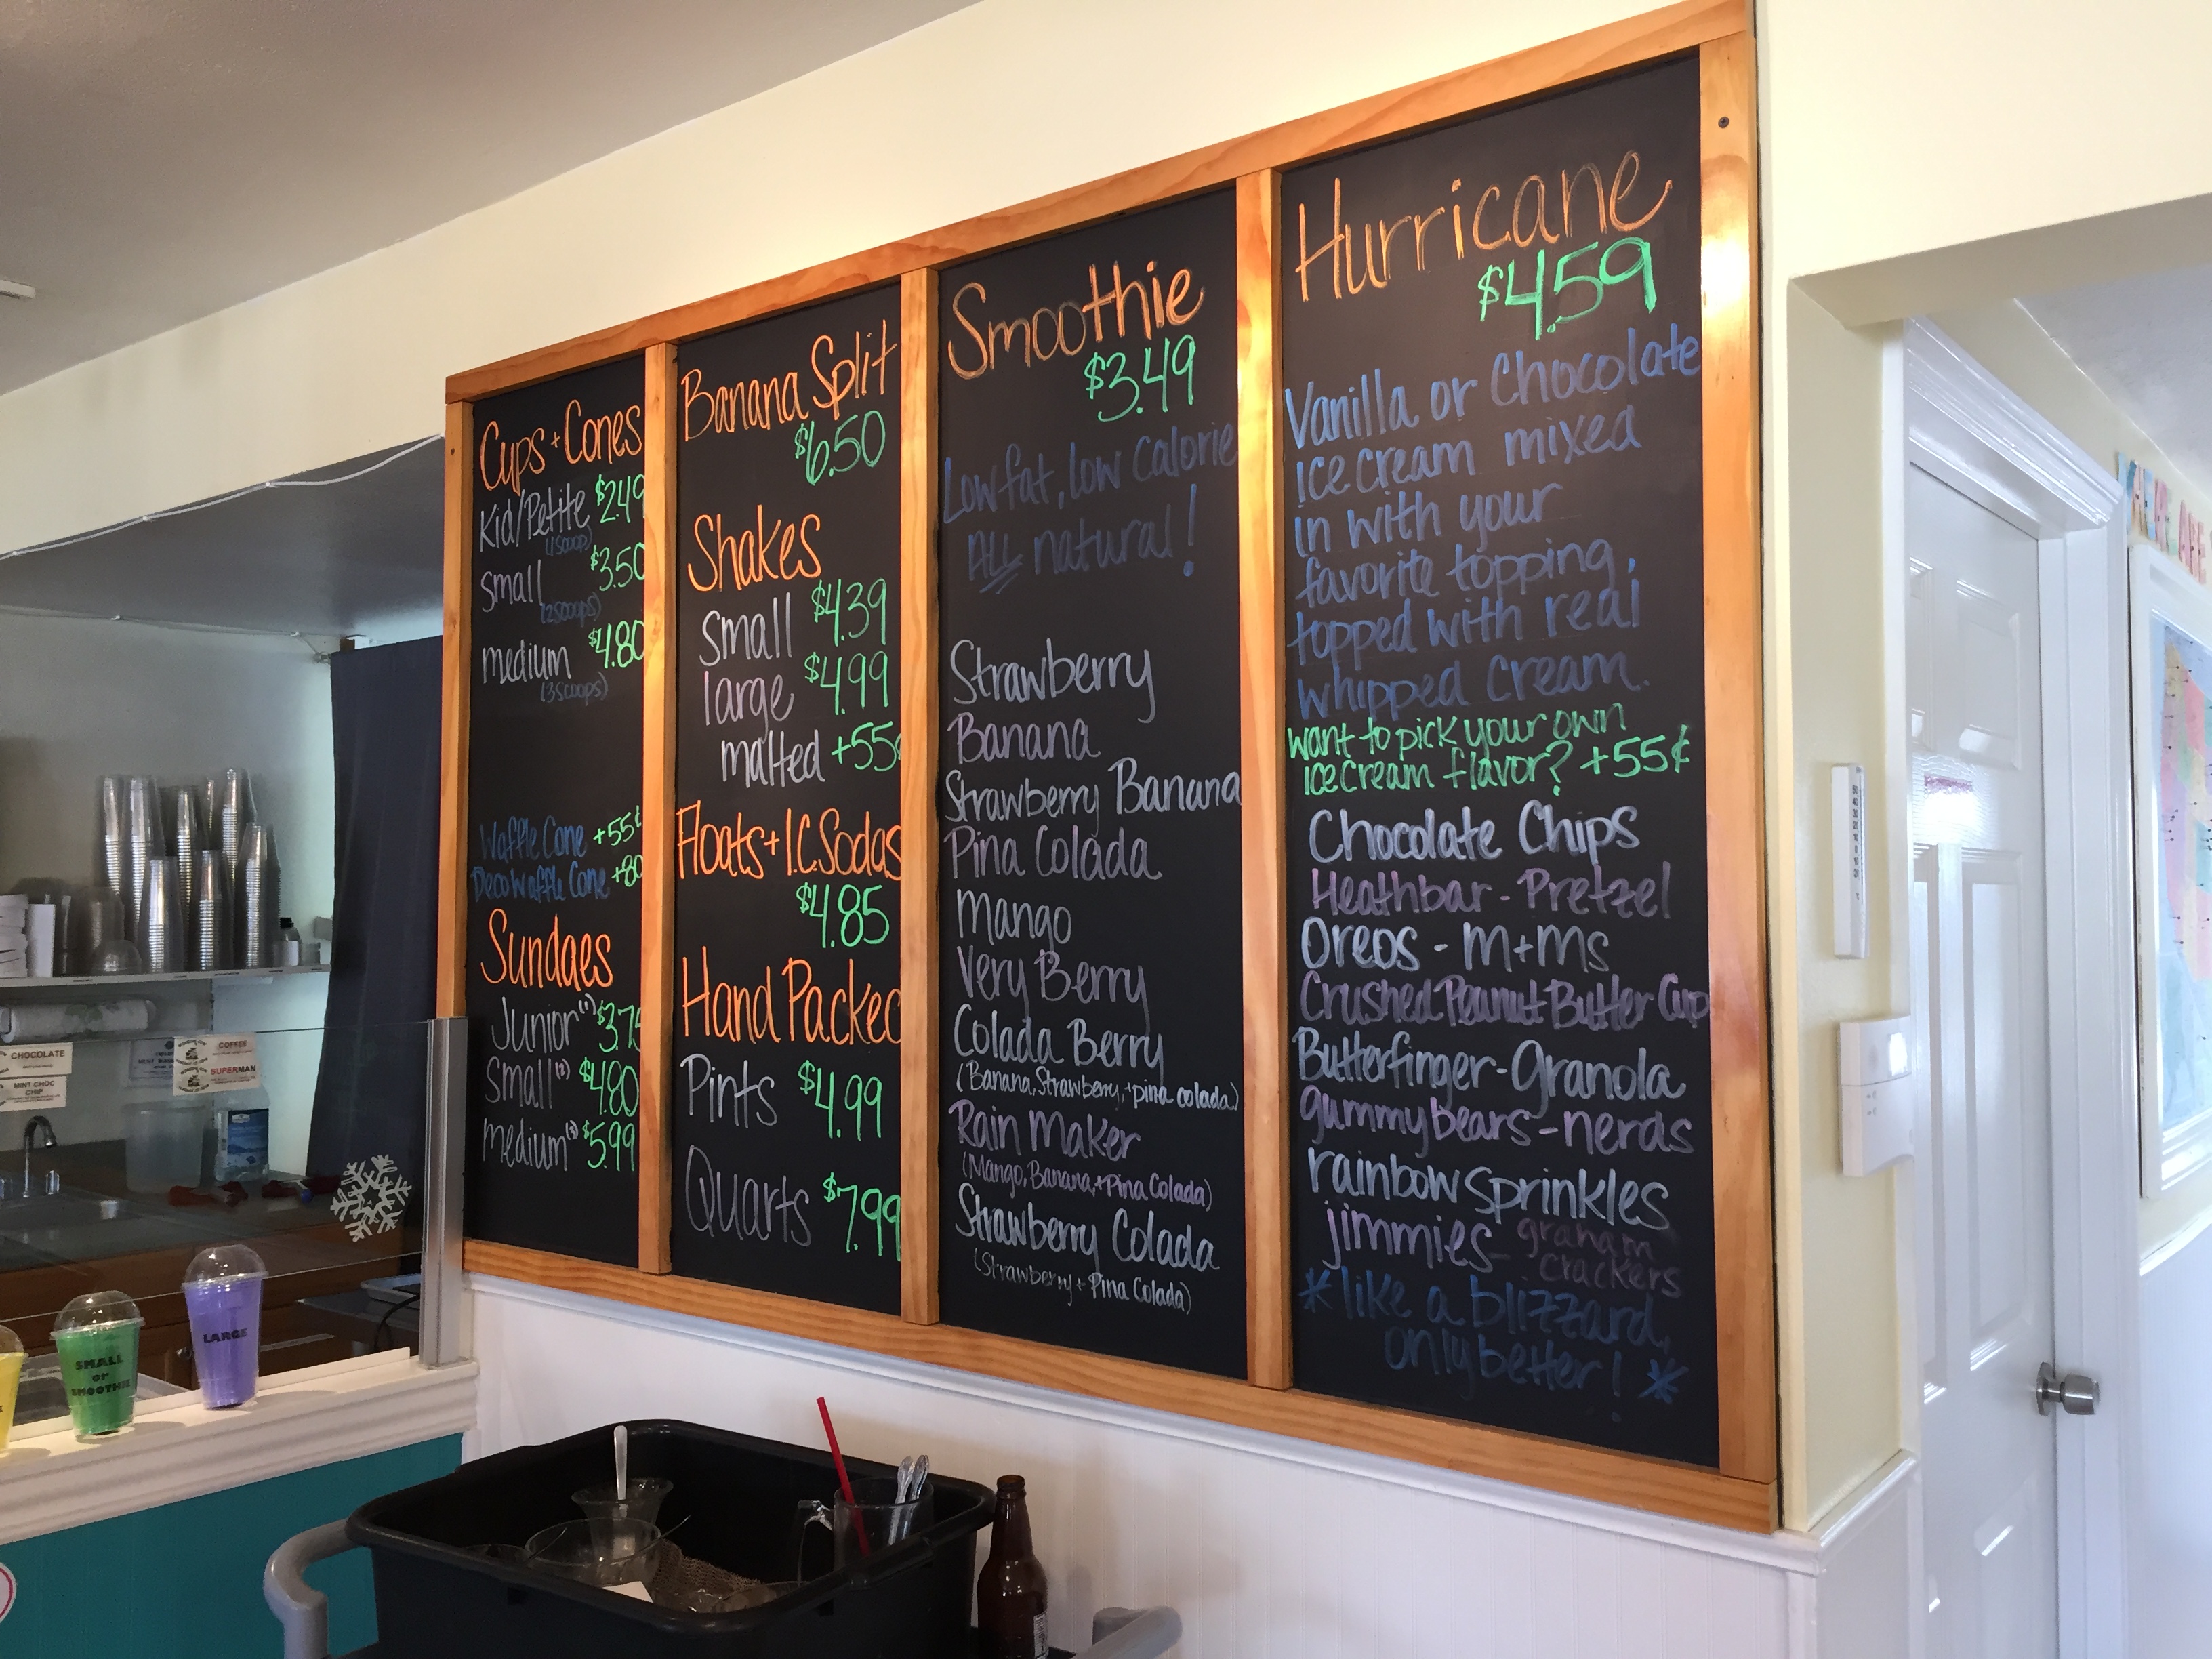 Cups + Cones
Kid/Petite $2.49
(1 scoop)
small $3.50
(2 scoops)
medium $4.80
(3 scoops)
Waffle Cone +55¢
Deco Waffle Cone +80
Sundaes
Junior (1) $3.75
Small (2) $4.80
medium (3) $5.99
Banana Split
$6.50
Shakes
small $4.39
large $4.99
malted +55¢
Floats + I.C. Sodas
$4.85
Hand Packed
Pints $4.99
Quarts $7.99
Smoothie
$3.49
Low fat, low calorie
ALL natural!
Strawberry
Banana
Strawberry Banana
Pina Colada
Mango
Very Berry
Colada Berry
(Banana, Strawberry, + pina colada)
Rain Maker
(Mango, Banana, + Pina Colada)
Strawberry Colada
(Strawberry + Pina Colada)
Hurricane
$4.59
Vanilla or Chocolate
Ice cream mixed
in with your
favorite topping,
topped with real
whipped cream.
want to pick your own
ice cream flavor? +55¢
Chocolate Chips
Heathbar - Pretzel
Oreos - M+Ms
Crushed Peanut Butter Cup
Butterfinger - Granola
gummybears - nerds
rainbow sprinkles
jimmies - graham
crackers
*like a blizzard,
only better! *
CHOCOLATE
MINT CHOC
CHIP
COFFEE
SUPERMAN
SMALL
or
SMOOTHIE
LARGE